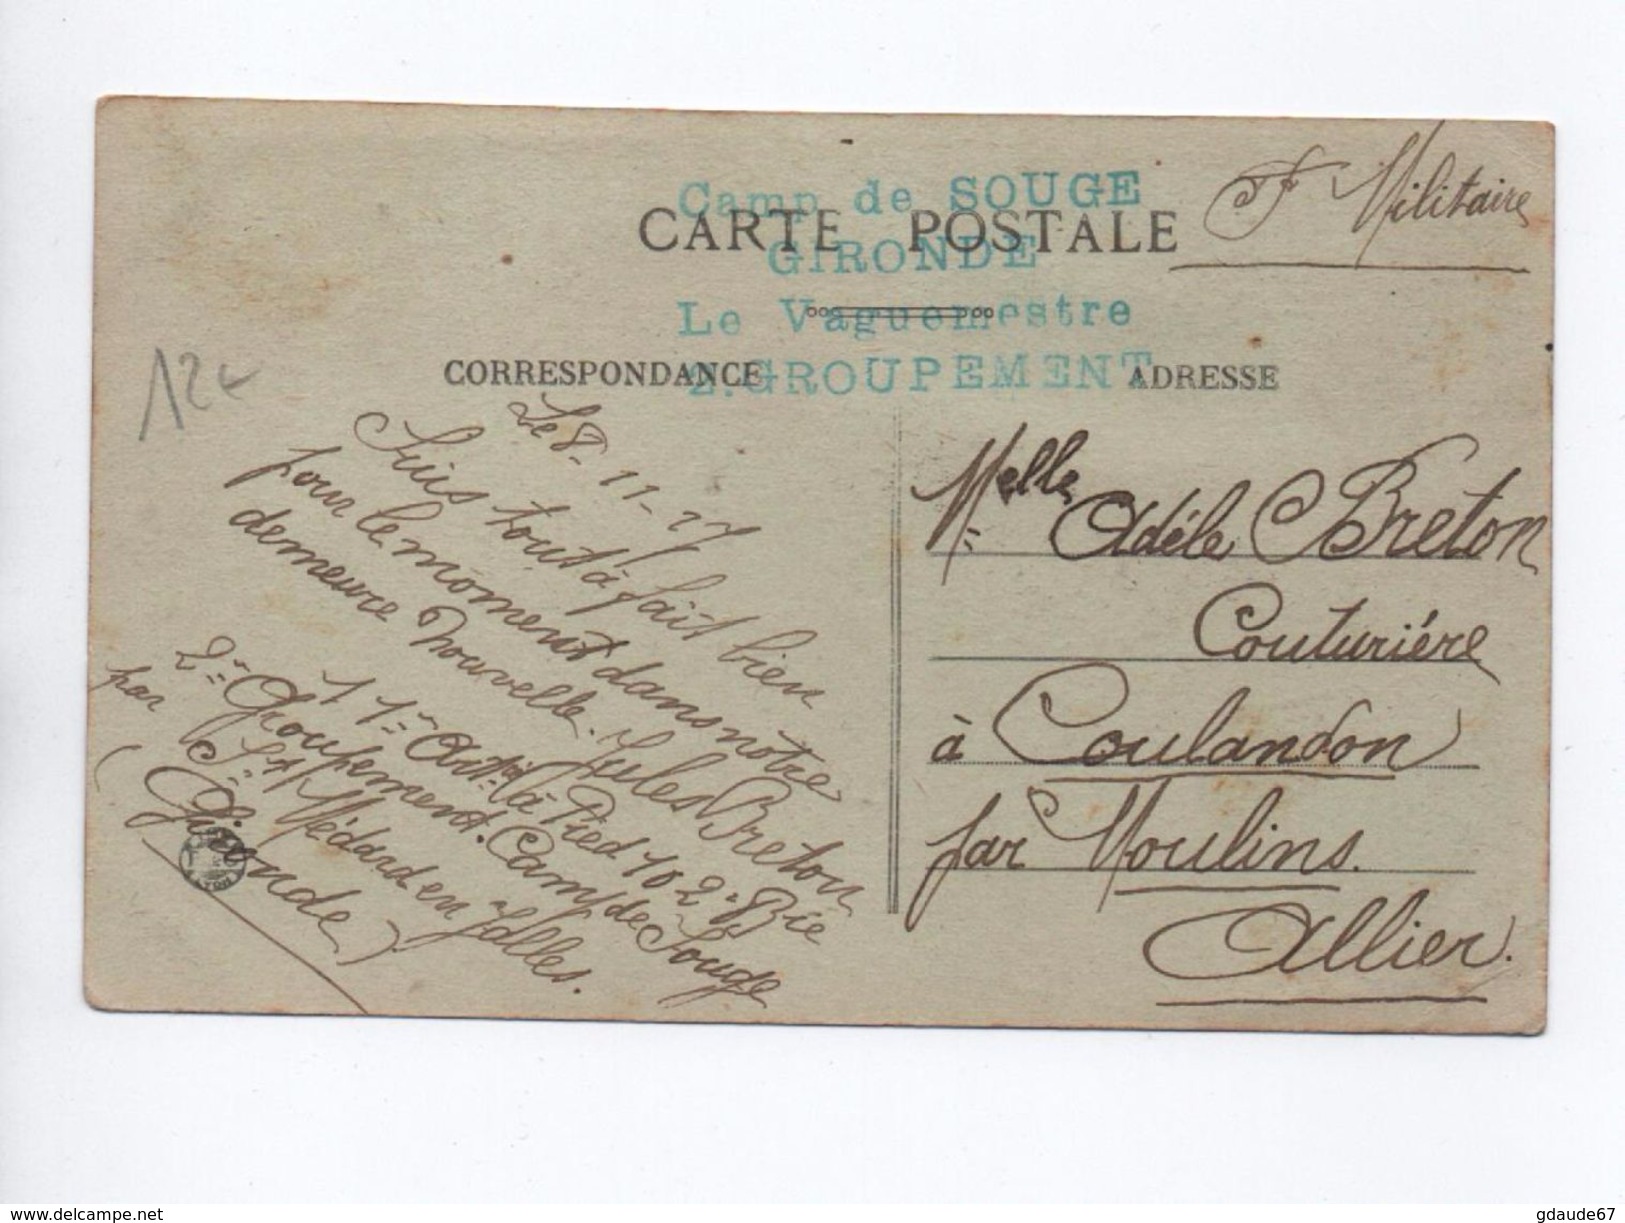 Camp de SOUGE
CARTE POSTALE
GIRONDE
Le Vaguemestre
2. GROUPEMENT
F Militaire
12€
CORRESPONDANCE
ADRESSE
Le 8-11-17
Suis tout à fait bien
pour le moment dans notre
demeure nouvelle. Jules Breton
à Pied 2e Bie
2e Groupement. Camp de Souge
par St Médard en Jalles.
(Gironde)
Melle Adéle Breton
Couturiére
à Coulandon
par Moulins.
Allier.
www.delcampe.net
gdaude67